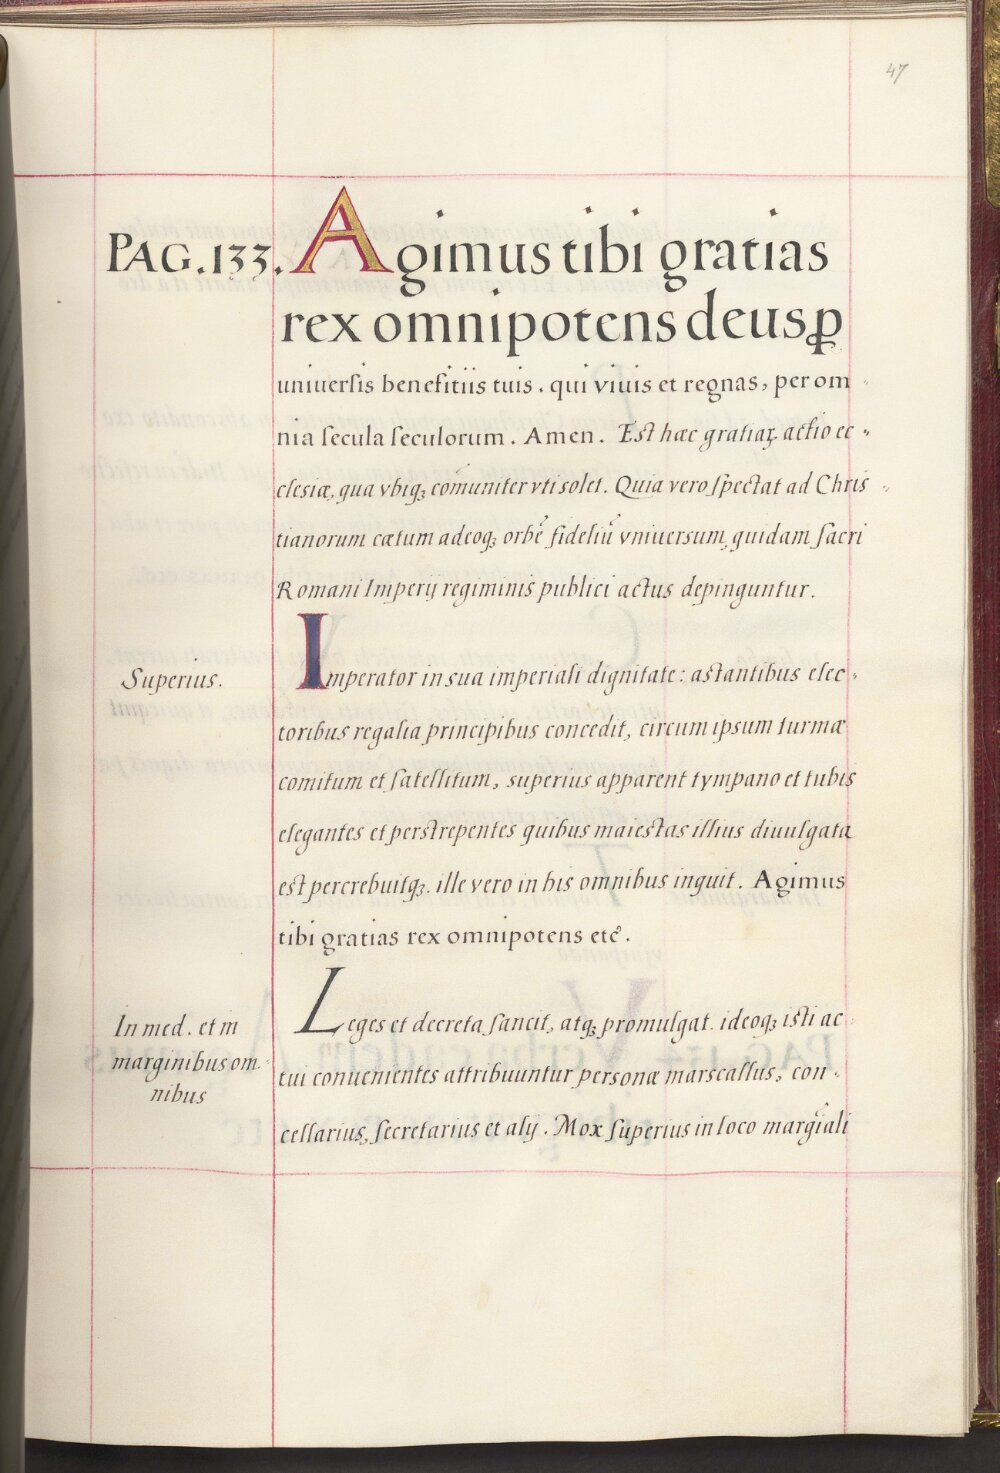 47
PAG. 133. Agimus tibi gratias
rex omnipotens deus ꝑ
uniuersis benefitiis tuis. qui viuis et regnas, per om-
nia ſecula ſeculorum. Amen. Est hæc gratiaꝝ actio ec-
clesiæ, qua vbiqꝫ cōmuniter vti solet. Quia vero ſpectat ad Chris-
tianorum cætum adeoqꝫ orbē fideliū vniuersum, quidam ſacri
Romani Imperij regiminis publici actus depinguntur.
Superius.
Imperator in sua imperiali dignitate: astantibus elec-
toribus regalia principibus concedit, circum ipsum turmæ
comitum et ſatellitum, superius apparent tympano et tubis
elegantes et perstrepentes quibus maiestas illius diuulgata
est percrebuitqꝫ. ille vero in his omnibus inquit. Agimus
tibi gratias rex omnipotens etc̄.
In med. et in
marginibus om-
nibus
Leges et decreta ſancit, atqꝫ promulgat. ideoqꝫ isti ac-
tui conuenientes attribuuntur personæ marscallus, con-
cellarius, ſecretarius et alij. Mox ſuperius in loco margīali